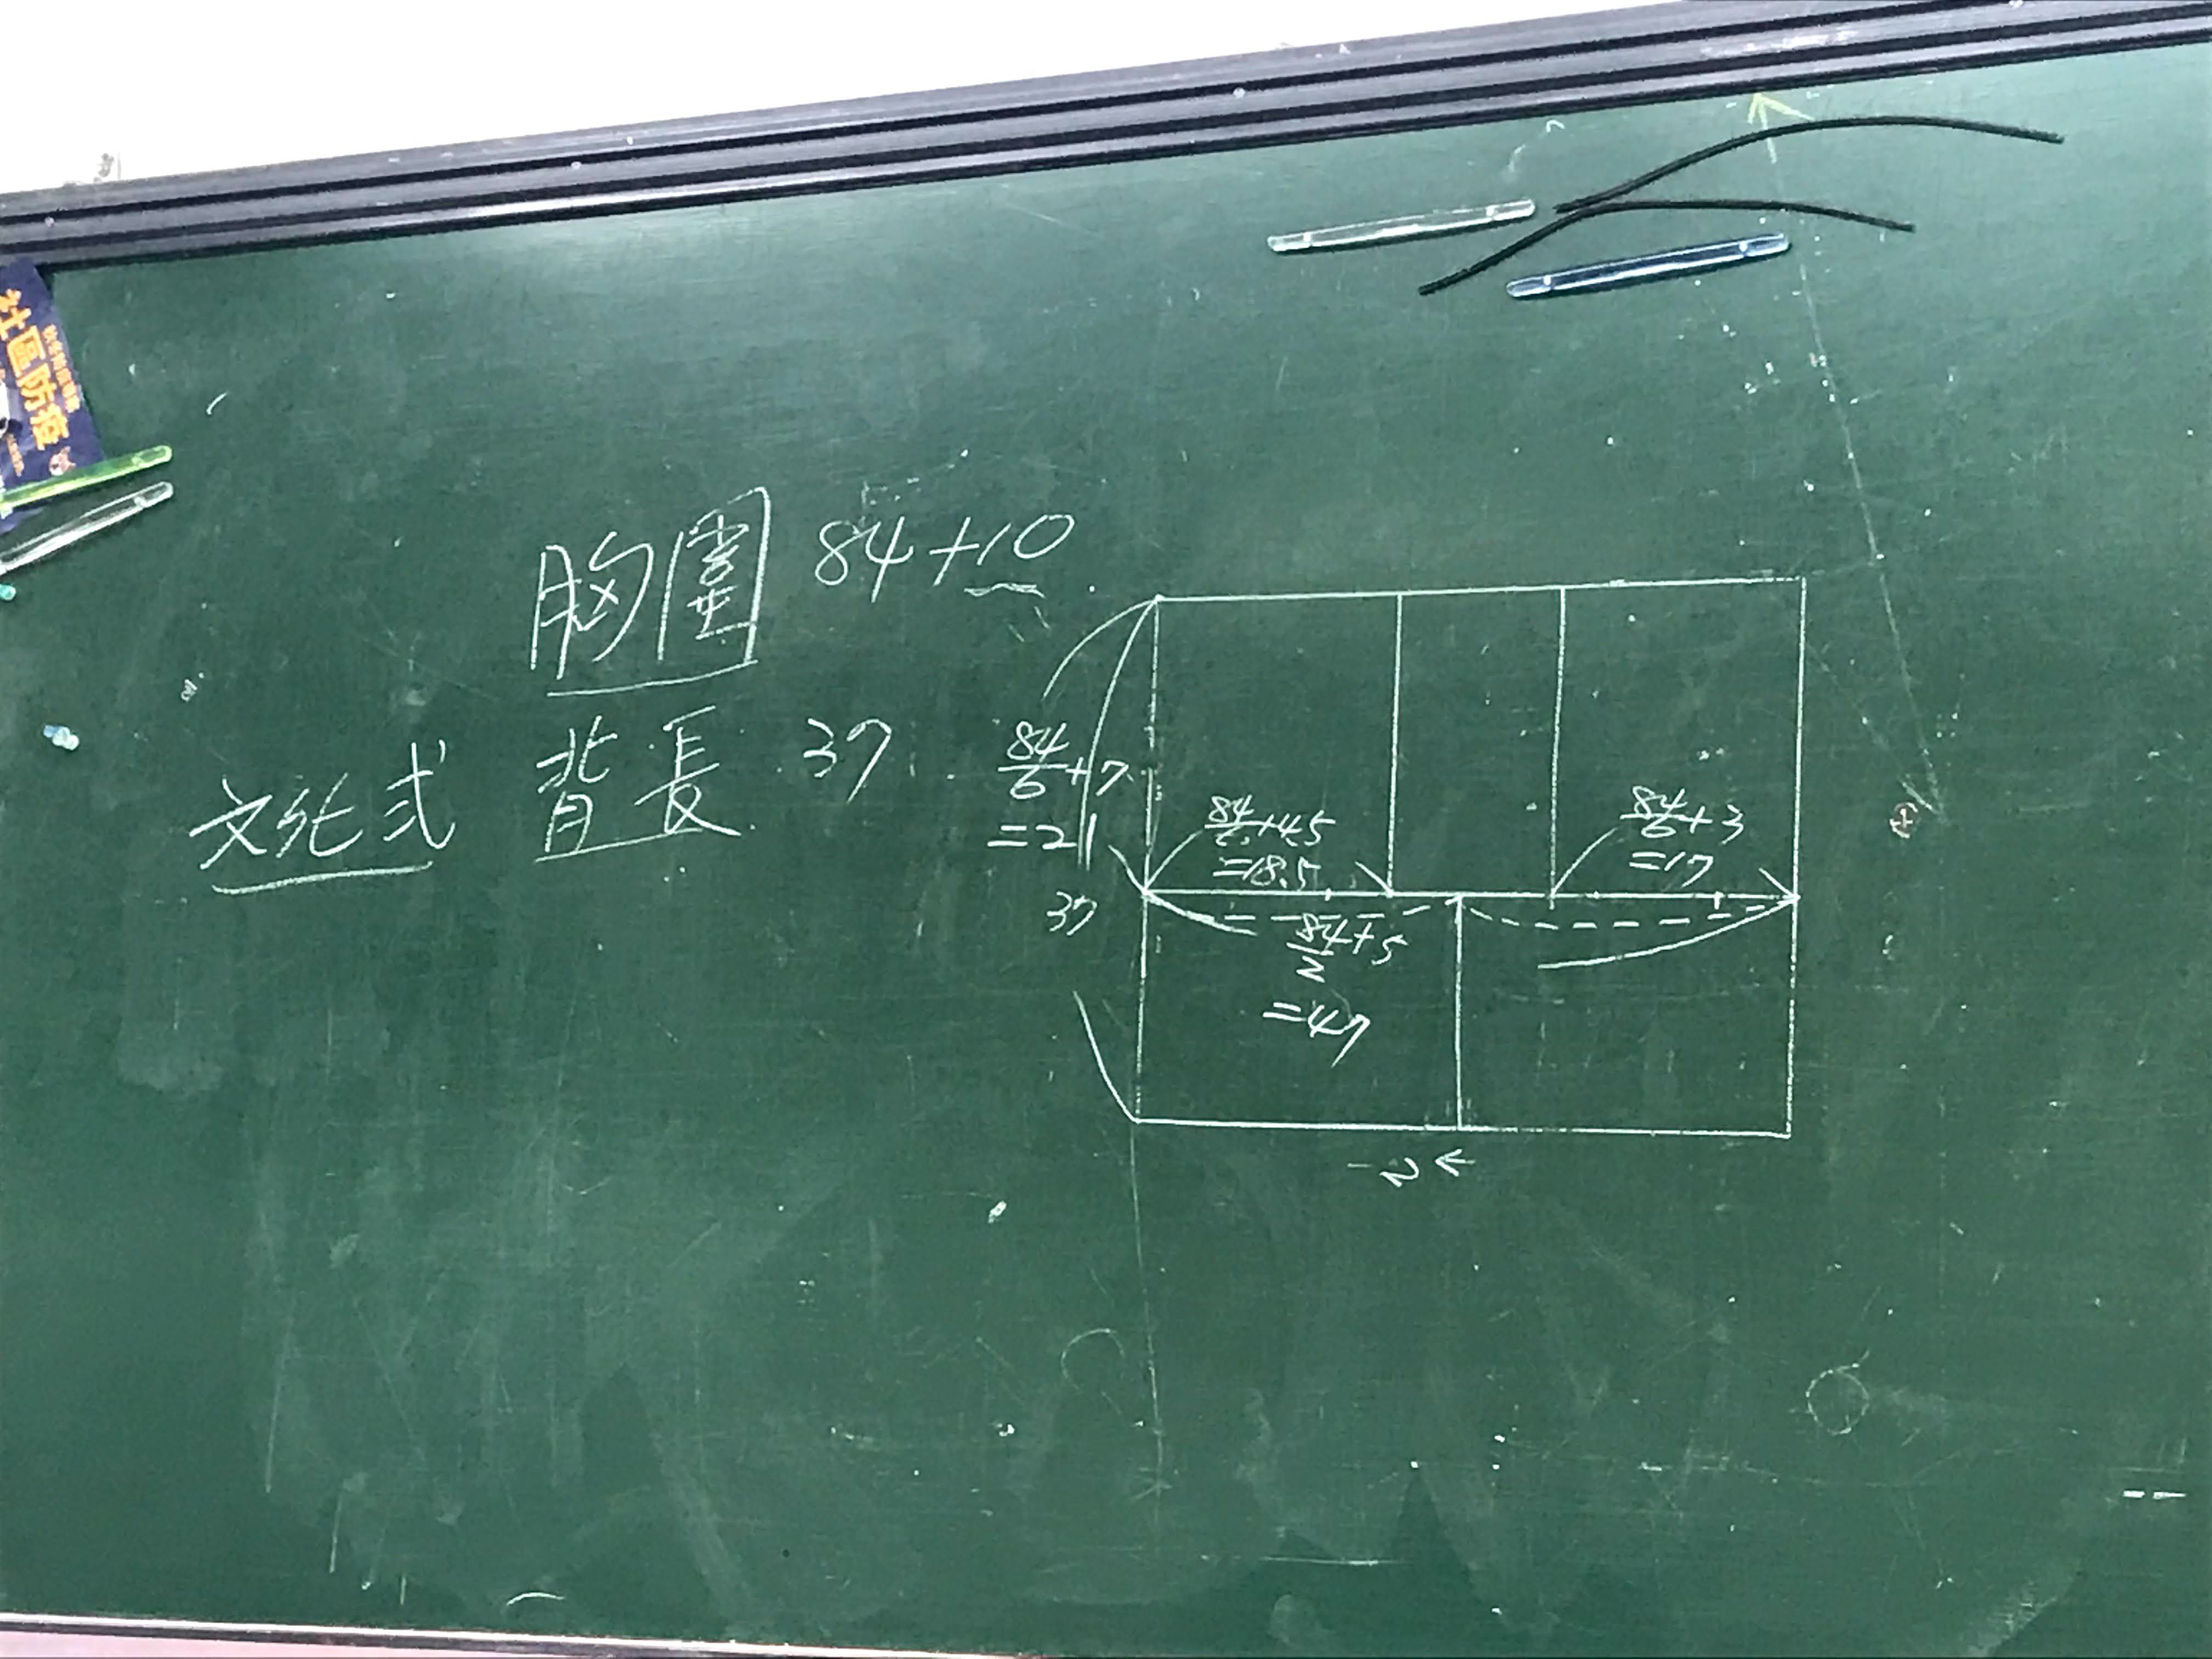 社區防疫
胸圍 84+10
文化式 背長 37
84/6+7
=21
84/6+4.5
=18.5
84/6+3
=17
37
84/2+5
=47
-2←